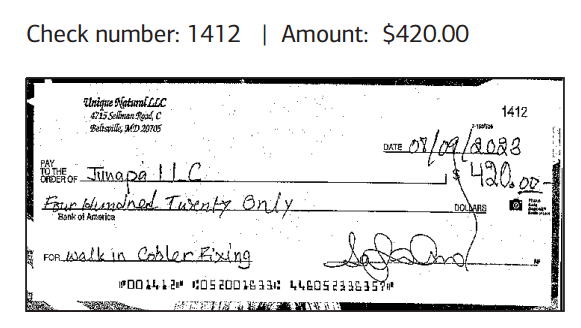 Check number: 1412 | Amount: $420.00
Unique Natural LLC
4715 Sellman Road, C
Beltsville, MD 20705
1412
DATE 09/2023
PAY TO THE ORDER OF Junapa LLC $ 420.00
Four Hundred Twenty Only DOLLARS
Bank of America
FOR walk in Cobler Fixing